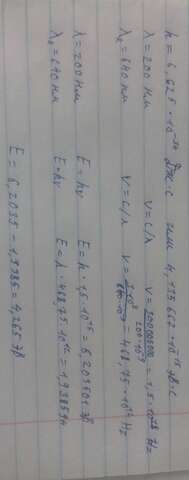 h = 6,625 · 10⁻³⁴ Дж·с или 4,135 667 · 10⁻¹⁵ эВ·с
λ = 200 нм V = C/λ V = 300000000/200·10⁻⁹ = 1,5·10¹⁵ Hz
λ₂ = 640 нм V = C/λ V = 3·10⁸/640·10⁻⁹ = 468,75·10¹² Hz
λ = 200 нм E = hν E = h · 1,5·10¹⁵ = 6,203501 эВ
λ₂ = 640 нм E = hν E = h · 468,75·10¹² = 1,93859
E = 6,2035 – 1,9385 = 4,265 эВ